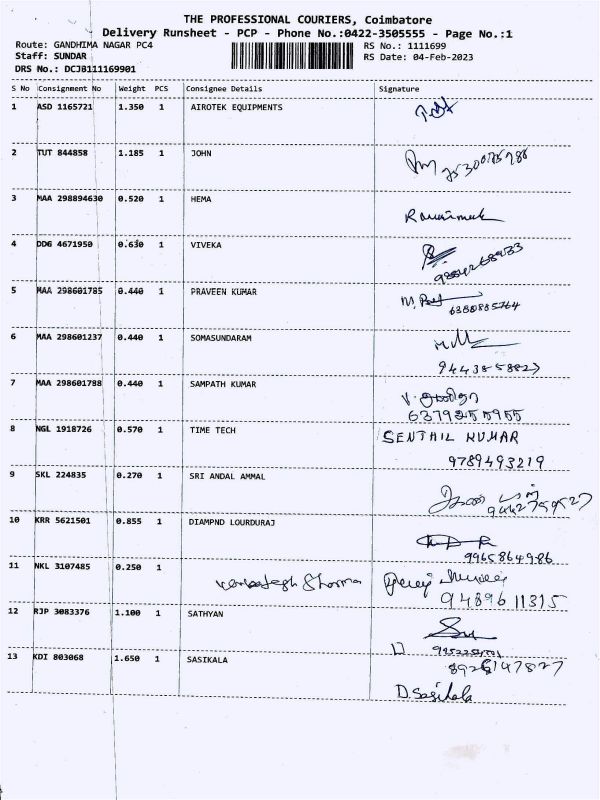 THE PROFESSIONAL COURIERS, Coimbatore
Delivery Runsheet - PCP - Phone No.:0422-3505555 - Page No.:1
Route: GANDHIMA NAGAR PC4 RS No.: 1111699
Staff: SUNDAR RS Date: 04-Feb-2023
DRS No.: DCJB111169901
S No Consignment No Weight PCS Consignee Details Signature
1 ASD 1165721 1.350 1 AIROTEK EQUIPMENTS
2 TUT 844858 1.185 1 JOHN
3 MAA 298894630 0.520 1 HEMA
4 DDG 4671950 0.630 1 VIVEKA
5 MAA 298601785 0.440 1 PRAVEEN KUMAR
6380885764
6 MAA 298601237 0.440 1 SOMASUNDARAM
9443858827
7 MAA 298601788 0.440 1 SAMPATH KUMAR
6379255955
8 NGL 1918726 0.570 1 TIME TECH SENTHIL KUMAR
9789493219
9 SKL 224835 0.270 1 SRI ANDAL AMMAL
9442759527
10 KRR 5621501 0.855 1 DIAMPND LOURDURAJ
9965864986
11 NKL 3107485 0.250 1 Venkatesh Sharma
9489611315
12 RJP 3083376 1.100 1 SATHYAN
13 KDI 803068 1.650 1 SASIKALA
D. Sasikala